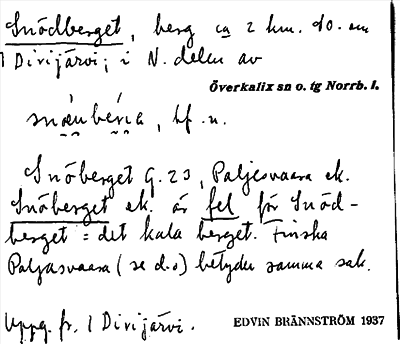 Snödberget, berg ca 2 km. SO. om
1 Dirijärvi; i N. delen av
Överkalix sn o. tg Norrb. l.
hf. n.
Snöberget G. 23, Paljesvaara ek.
Snöberget ek. är fel för Snöd-
berget = det kala berget. Finska
Paljasvaara (se d.o) betyder samma sak.
Uppg. fr. 1 Dirijärvi.
EDVIN BRÄNNSTRÖM 1937